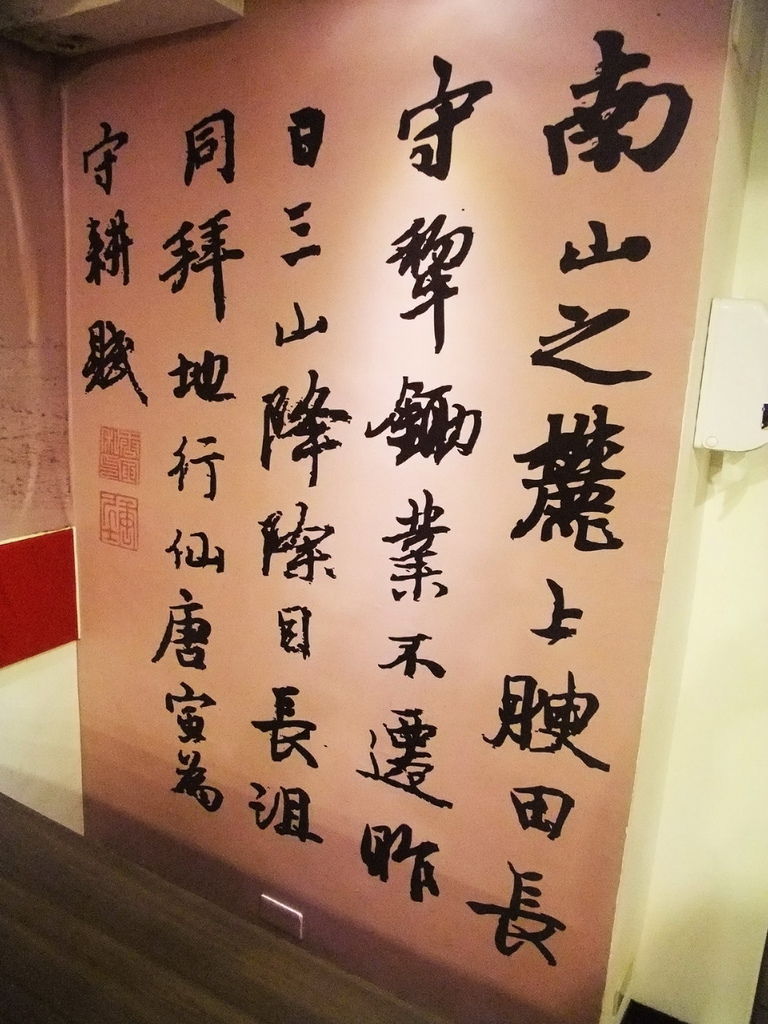 南山之麓上腴田長
守犂鋤業不遷昨
日三山降除目長沮
同拜地行仙唐寅為
守耕賦